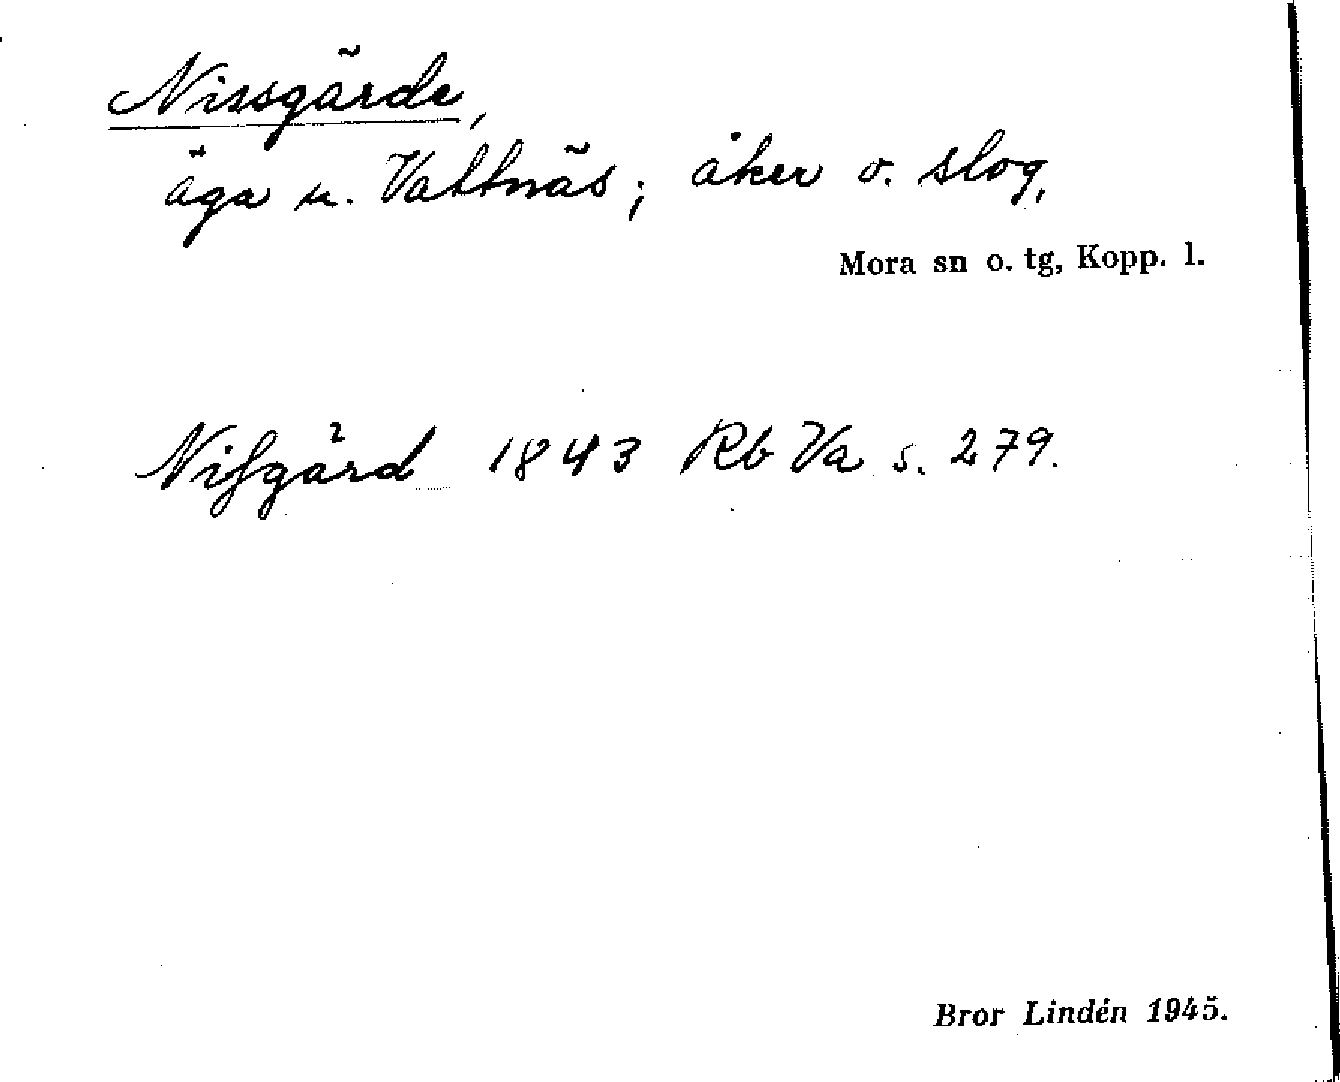 Nissgärde,
äga u. Vattnäs; åker o. slog,
Mora sn o. tg, Kopp. l.
Nißgård 1843 Rb Va s. 279.
Bror Lindén 1945.